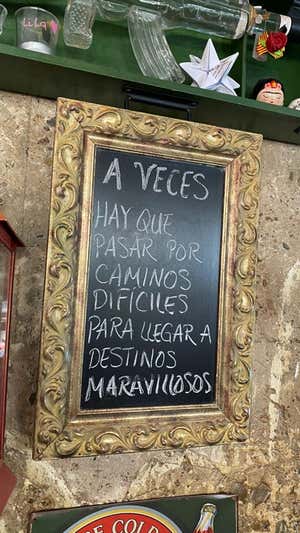 LiLa
A VECES
HAY QUE
PASAR POR
CAMINOS
DIFÍCILES
PARA LLEGAR A
DESTINOS
MARAVILLOSOS
COLD